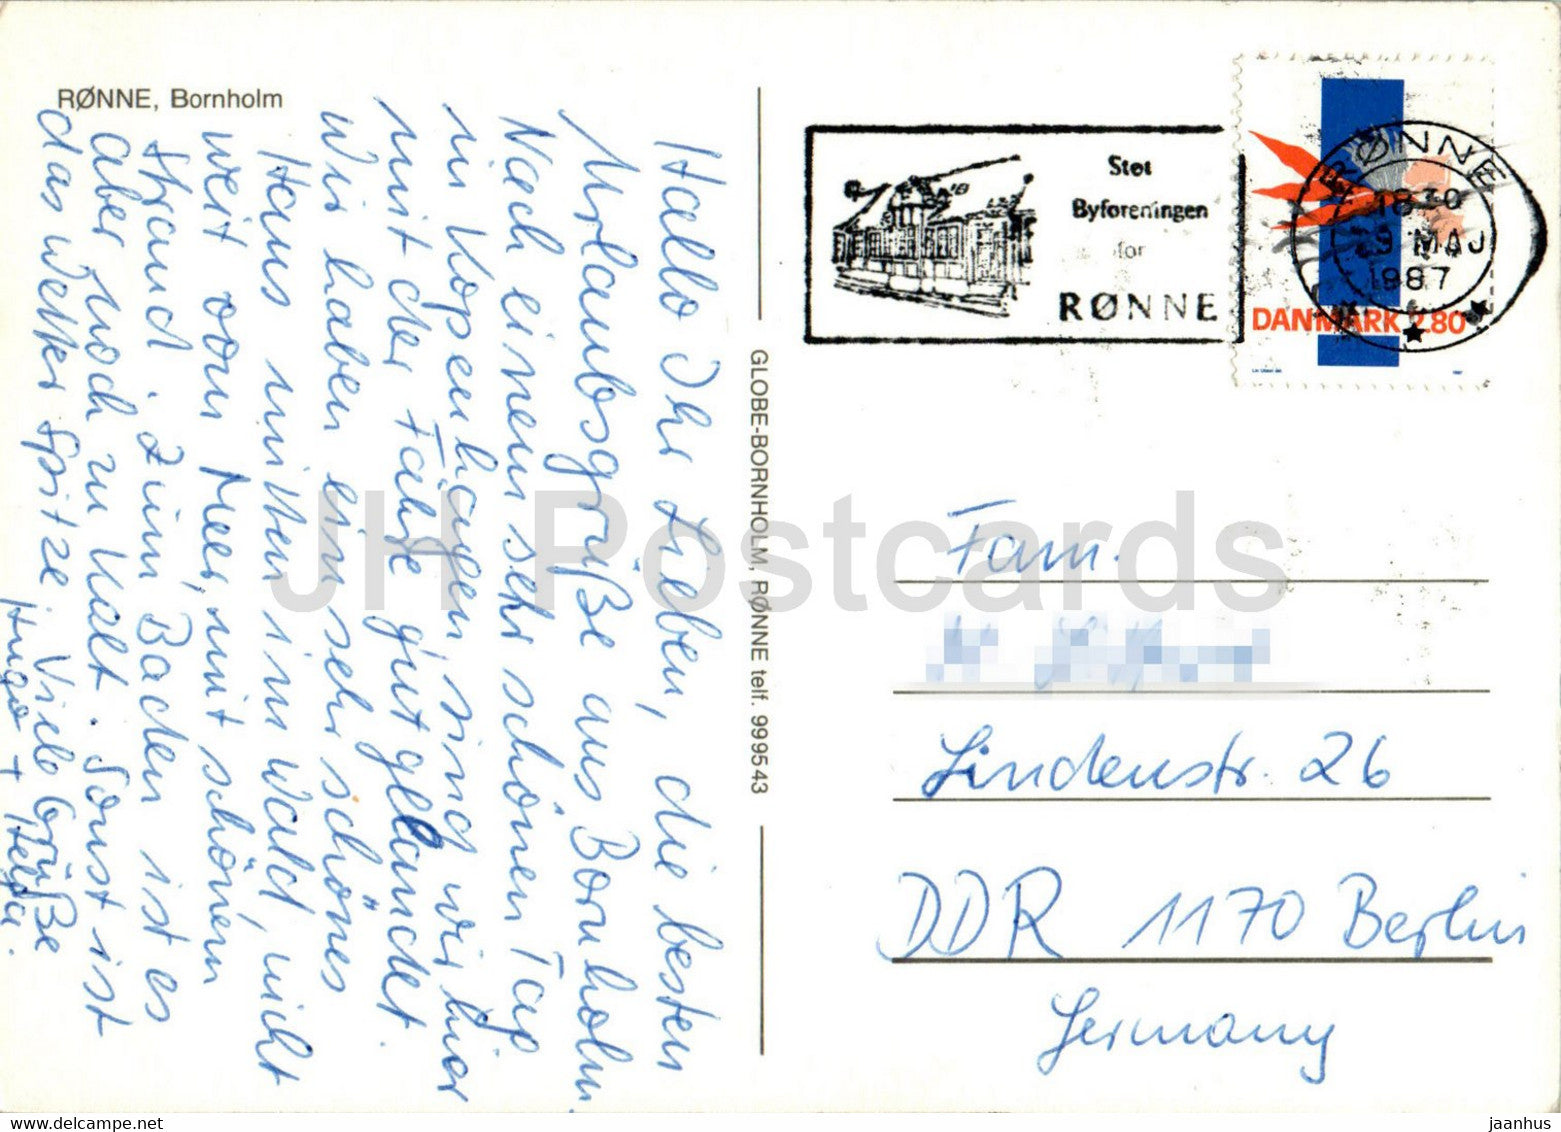 RØNNE, Bornholm
Hallo Ihr Lieben, die besten
Urlaubsgrüße aus Bornholm.
Nach einem sehr schönen Tag
in Kopenhagen sind wir hier
mit der Fähre gut gelandet.
Wir haben ein sehr schönes
Haus mitten im Wald, nicht
weit vom Meer, mit schönem
Strand. Zum Baden ist es
aber noch zu kalt. Sonst ist
das Wetter Spitze. Viele Grüße
Ingo + Helga.
GLOBE-BORNHOLM, RØNNE telf. 999543
Støt
Byforeningen
for
RØNNE
RØNNE
18 30
19 MAJ
1987
DANMARK 2.80
Fam.
Lindenstr. 26
DDR 1170 Berlin
Germany
JH Postcards
www.delcampe.net
jaanhus